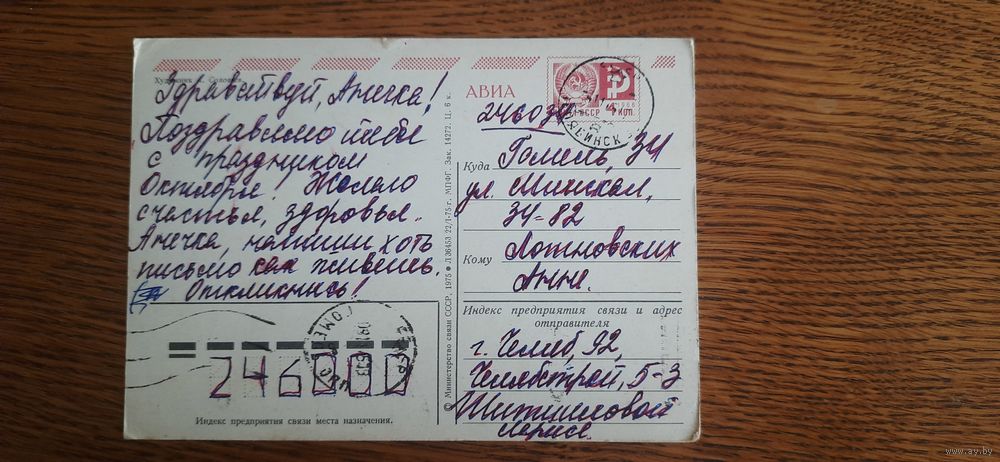 Художник
Здравствуй, Анечка!
Поздравляю тебя
с праздником
Октября! Желаю
счастья, здоровья.
Анечка, напиши хоть
письмо как живешь.
Откликнись!
246000
Индекс предприятия связи места назначения.
© Министерство связи СССР, 1975 Л36453 22/I-75 г. МПФГ. Зак. 14272. Ц. 6 к.
АВИА
ПОЧТА СССР 4 КОП.
246034
Куда Гомель, 34
ул. Минская,
34-82
Кому
Анне.
Индекс предприятия связи и адрес
отправителя
г. Челяб, 92,
Челябстрой, 5-3
Ларисе.
www.ay.by